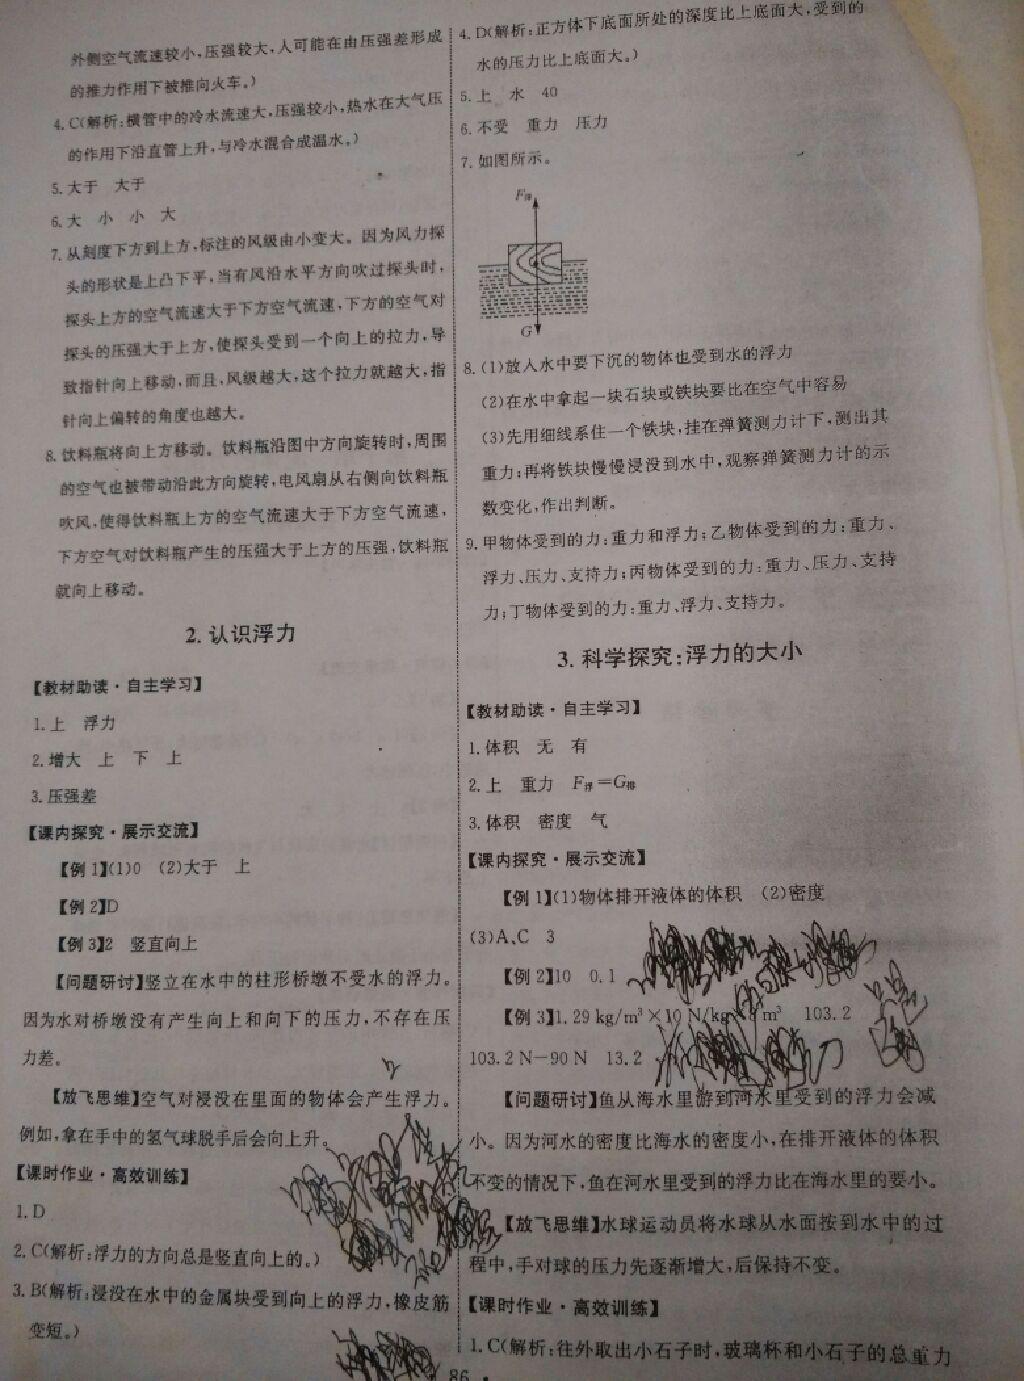 外侧空气流速较小,压强较大,人可能在由压强差形成
的推力作用下被推向火车。)
4. C(解析:横管中的冷水流速大,压强较小,热水在大气压
的作用下沿直管上升,与冷水混合成温水。)
5. 大于 大于
6. 大 小 小 大
7. 从刻度下方到上方,标注的风级由小变大。因为风力探
头的形状是上凸下平,当有风沿水平方向吹过探头时,
探头上方的空气流速大于下方空气流速,下方的空气对
探头的压强大于上方,使探头受到一个向上的拉力,导
致指针向上移动,而且,风级越大,这个拉力就越大,指
针向上偏转的角度也越大。
8. 饮料瓶将向上方移动。饮料瓶沿图中方向旋转时,周围
的空气也被带动沿此方向旋转,电风扇从右侧向饮料瓶
吹风,使得饮料瓶上方的空气流速大于下方空气流速,
下方空气对饮料瓶产生的压强大于上方的压强,饮料瓶
就向上移动。
2. 认识浮力
【教材助读·自主学习】
1. 上 浮力
2. 增大 上 下 上
3. 压强差
【课内探究·展示交流】
【例1】(1)0 (2)大于 上
【例2】D
【例3】2 竖直向上
【问题研讨】竖立在水中的柱形桥墩不受水的浮力。
因为水对桥墩没有产生向上和向下的压力,不存在压
力差。
【放飞思维】空气对浸没在里面的物体会产生浮力。
例如,拿在手中的氢气球脱手后会向上升。
【课时作业·高效训练】
1. D
2. C(解析:浮力的方向总是竖直向上的。)
3. B(解析:浸没在水中的金属块受到向上的浮力,橡皮筋
变短。)
4. D(解析:正方体下底面所处的深度比上底面大,受到的
水的压力比上底面大。)
5. 上 水 40
6. 不受 重力 压力
7. 如图所示。
F浮
G
8. (1)放入水中要下沉的物体也受到水的浮力
(2)在水中拿起一块石块或铁块要比在空气中容易
(3)先用细线系住一个铁块,挂在弹簧测力计下,测出其
重力;再将铁块慢慢浸没到水中,观察弹簧测力计的示
数变化,作出判断。
9. 甲物体受到的力:重力和浮力;乙物体受到的力:重力、
浮力、压力、支持力;丙物体受到的力:重力、压力、支持
力;丁物体受到的力:重力、浮力、支持力。
3. 科学探究:浮力的大小
【教材助读·自主学习】
1. 体积 无 有
2. 上 重力 F浮=G排
3. 体积 密度 气
【课内探究·展示交流】
【例1】(1)物体排开液体的体积 (2)密度
(3)A、C 3
【例2】10 0.1
【例3】1.29 kg/m³×10 N/kg×8 m³ 103.2
103.2 N-90 N 13.2
【问题研讨】鱼从海水里游到河水里受到的浮力会减
小。因为河水的密度比海水的密度小,在排开液体的体积
不变的情况下,鱼在河水里受到的浮力比在海水里的要小。
【放飞思维】水球运动员将水球从水面按到水中的过
程中,手对球的压力先逐渐增大,后保持不变。
【课时作业·高效训练】
1. C(解析:往外取出小石子时,玻璃杯和小石子的总重力
86